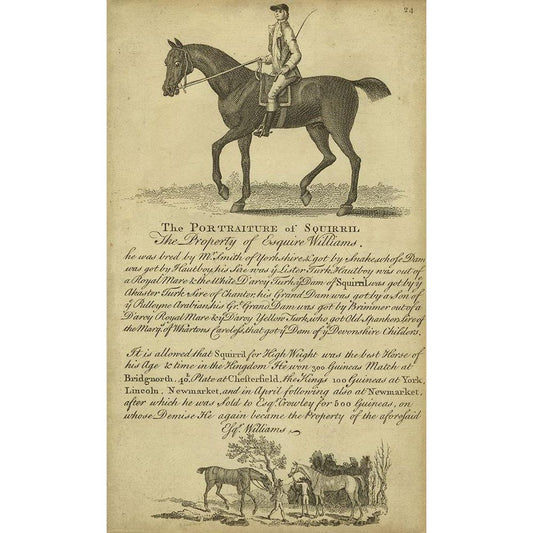 24
The PORTRAITURE of SQUIRRIL
The Property of Esquire Williams.
he was bred by Mr. Smith of Yorkshire & got by Snake whose Dam
was got by Hautboy, his Sire was ye Lister Turk, Hautboy was out of
a Royal Mare & the White D'arcy Turk, ye Dam of Squirril was got by ye
Akaster Turk Sire of Chanter, his Grand Dam was got by a Son of
ye Pulleyne Arabian, his Gt. Gran: Dam was got by Brimmer out of a
D'arcy Royal Mare & ye D'arcy Yellow Turk, who got Old Spanker, Sire of
the Marqs. of Whartons Careless, that got ye Dam of ye Devonshire Childers.
It is allowed that Squirril for High Weight was the best Horse of
his Age & time in the Kingdom He won 300 Guineas Match at
Bridgnorth, 40, Plate at Chesterfield, the Kings 100 Guineas at York,
Lincoln, Newmarket, and in April following also at Newmarket,
after which he was Sold to Esqr. Crowley for 500 Guineas, on
whose Demise He again became the Property of the aforesaid
Esqr. Williams